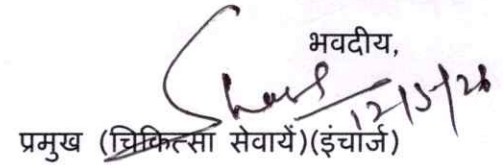 भवदीय,
12/3/26
प्रमुख (चिकित्सा सेवायें)(इंचार्ज)